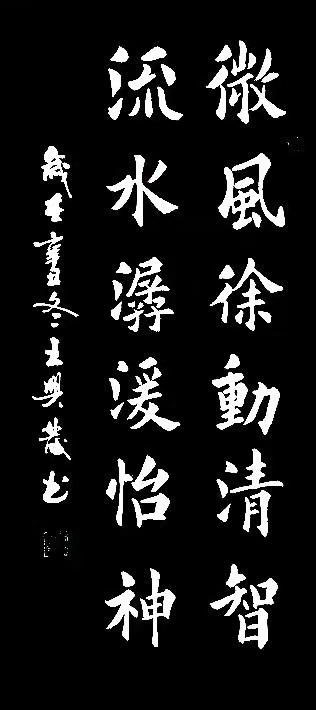 微風徐動清智
流水潺湲怡神
歲在辛丑冬王興農书